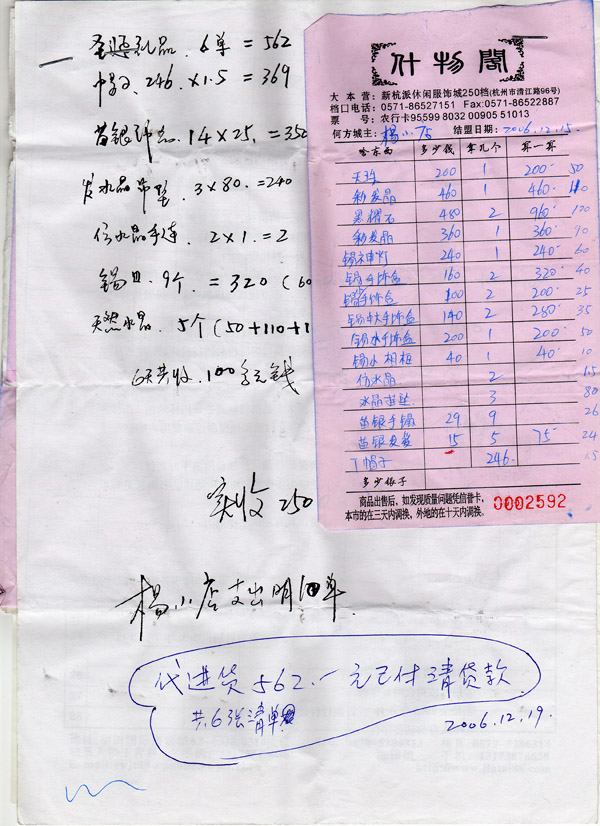 圣诞礼品. 6单 = 562
帽子. 246. ×1.5 = 369
苗银饰品. 14×25. = 350
发水晶吊坠 3×80. =240
仿水晶手连 2×1. =2
锡皿. 9个. = 320 (60
天然水晶. 5个 (50+110+1
实收 250
杨小店支出明细单
代进货 562.- 元已付清货款
共6张清单
2006.12.19.
什物阁
大本营: 新杭派休闲服饰城250档(杭州市清江路96号)
档口电话: 0571-86527151 Fax:0571-86522887
票 号: 农行卡95599 8032 00905 51013
何方城主: 杨小店 结盟日期: 2006.12.15.
啥东西 多少钱 拿几个 算一算
天珠 200 1 200 50
彩发晶 460 1 460 110
黑曜石 480 2 960 120
彩发晶 360 1 360 90
锡神灯 240 1 240 60
锡手饰盒 160 2 320 40
锡手饰盒 100 2 200 25
锡大手饰盒 140 2 280 35
锡小手饰盒 200 1 200 50
锡小相框 40 1 40 10
仿水晶 2 1.5
水晶吊坠 3 80
苗银手镯 29 9 26
苗银发簪 15 5 75 24
丁帽子 246. 1.5
多少银子
商品出售后, 如发现质量问题凭信誉卡,
本市的在三天内调换, 外地的在十天内调换.
0002592